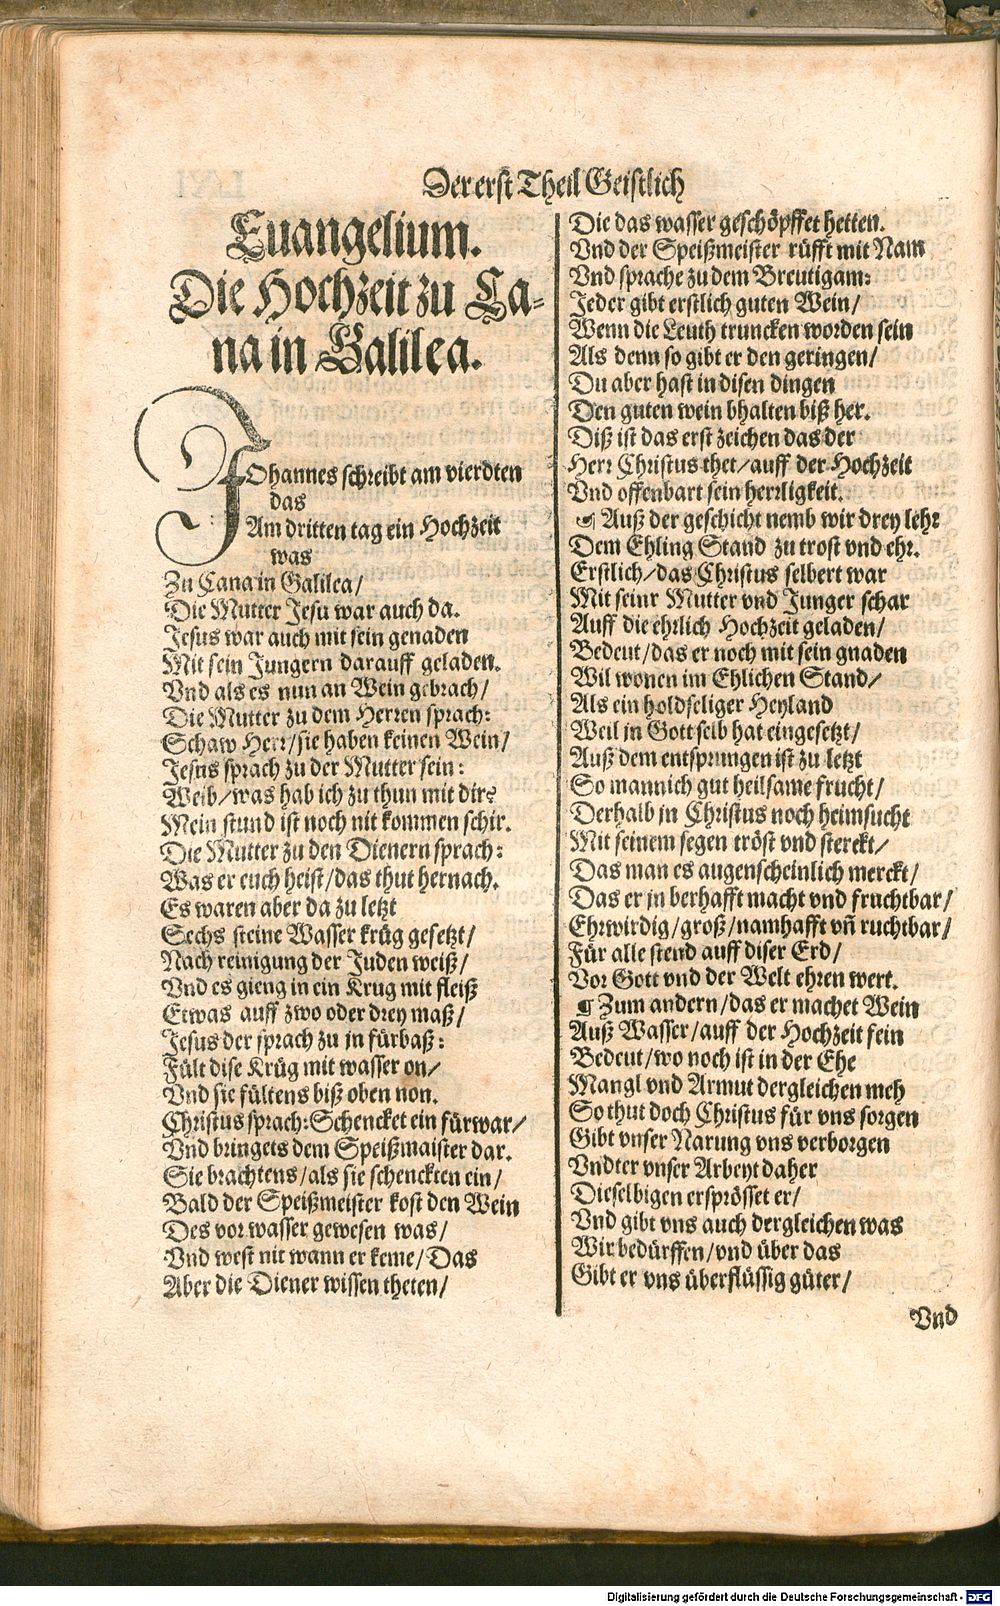 Der erst Theil Geistlich
Euangelium.
Die Hochzeit zu Ca-
na in Galilea.
JOhannes schreibt am vierdten
das
Am dritten tag ein Hochzeit
was
Zu Cana in Galilea/
Die Mutter Jesu war auch da.
Jesus war auch mit sein genaden
Mit sein Jungern darauff geladen.
Vnd als es nun an Wein gebrach/
Die Mutter zu dem Herren sprach:
Schaw Herr/sie haben keinen Wein/
Jesus sprach zu der Mutter sein:
Weib/was hab ich zu thun mit dir?
Mein stund ist noch nit kommen schir.
Die Mutter zu den Dienern sprach:
Was er euch heist/das thut hernach.
Es waren aber da zu letzt
Sechs steine Wasser krüg gesetzt/
Nach reinigung der Juden weiß/
Vnd es gieng in ein Krug mit fleiß
Etwas auff zwo oder drey maß/
Jesus der sprach zu jn fürbaß:
Fült dise Krüg mit wasser on/
Vnd sie fültens biß oben non.
Christus sprach: Schencket ein fürwar/
Vnd bringets dem Speißmaister dar.
Sie brachtens/als sie schenckten ein/
Bald der Speißmeister kost den Wein
Des vor wasser gewesen was/
Vnd west nit wann er keme/Das
Aber die Diener wissen theten/
Die das wasser geschöpffet hetten.
Vnd der Speißmeister rüfft mit Nam
Vnd sprache zu dem Breutigam:
Jeder gibt erstlich guten Wein/
Wenn die Leuth truncken worden sein
Als denn so gibt er den geringen/
Du aber hast in disen dingen
Den guten wein bhalten biß her.
Diß ist das erst zeichen das der
Herr Christus thet/auff der Hochzeit
Vnd offenbart sein herrligkeit.
☙ Auß der geschicht nemb wir drey lehr
Dem Ehling Stand zu trost vnd ehr.
Erstlich/das Christus selbert war
Mit seinr Mutter vnd Junger schar
Auff die ehrlich Hochzeit geladen/
Bedeut/das er noch mit sein gnaden
Wil wonen im Ehlichen Stand/
Als ein holdseliger Heyland
Weil jn Gott selb hat eingesetzt/
Auß dem entsprungen ist zu letzt
So mannich gut heilsame frucht/
Derhalb jn Christus noch heimsucht
Mit seinem segen tröst vnd sterckt/
Das man es augenscheinlich merckt/
Das er jn berhafft macht vnd fruchtbar/
Ehrwirdig/groß/namhafft vñ ruchtbar/
Für alle stend auff diser Erd/
Vor Gott vnd der Welt ehren wert.
¶ Zum andern/das er machet Wein
Auß Wasser/auff der Hochzeit fein
Bedeut/wo noch ist in der Ehe
Mangl vnd Armut dergleichen meh
So thut doch Christus für vns sorgen
Gibt vnser Narung vns verborgen
Vndter vnser Arbeyt daher
Dieselbigen ersprösset er/
Vnd gibt vns auch dergleichen was
Wir bedürffen/vnd über das
Gibt er vns überflüssig güter/
Vnd
Digitalisierung gefördert durch die Deutsche Forschungsgemeinschaft - DFG